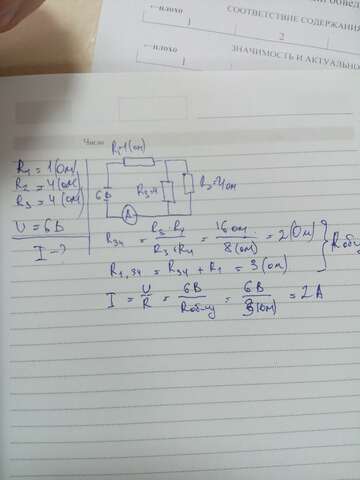 плохо
1
СООТВЕТСТВИЕ СОДЕРЖАНИЯ
2
плохо
1
ЗНАЧИМОСТЬ И АКТУАЛЬНО
Число
R1=1(ом)
R1 = 1(Ом)
R2 = 4(ом)
R3 = 4(ом)
U = 6В
I - ?
6В
R3=4
R2=4ом
A
R34 = R3·R4 / R3+R4 = 16 ом / 8(ом) = 2(Ом)
R1,34 = R34 + R1 = 3(ом)
I = U / R = 6В / Rобщ = 6В / 3(ом) = 2 А